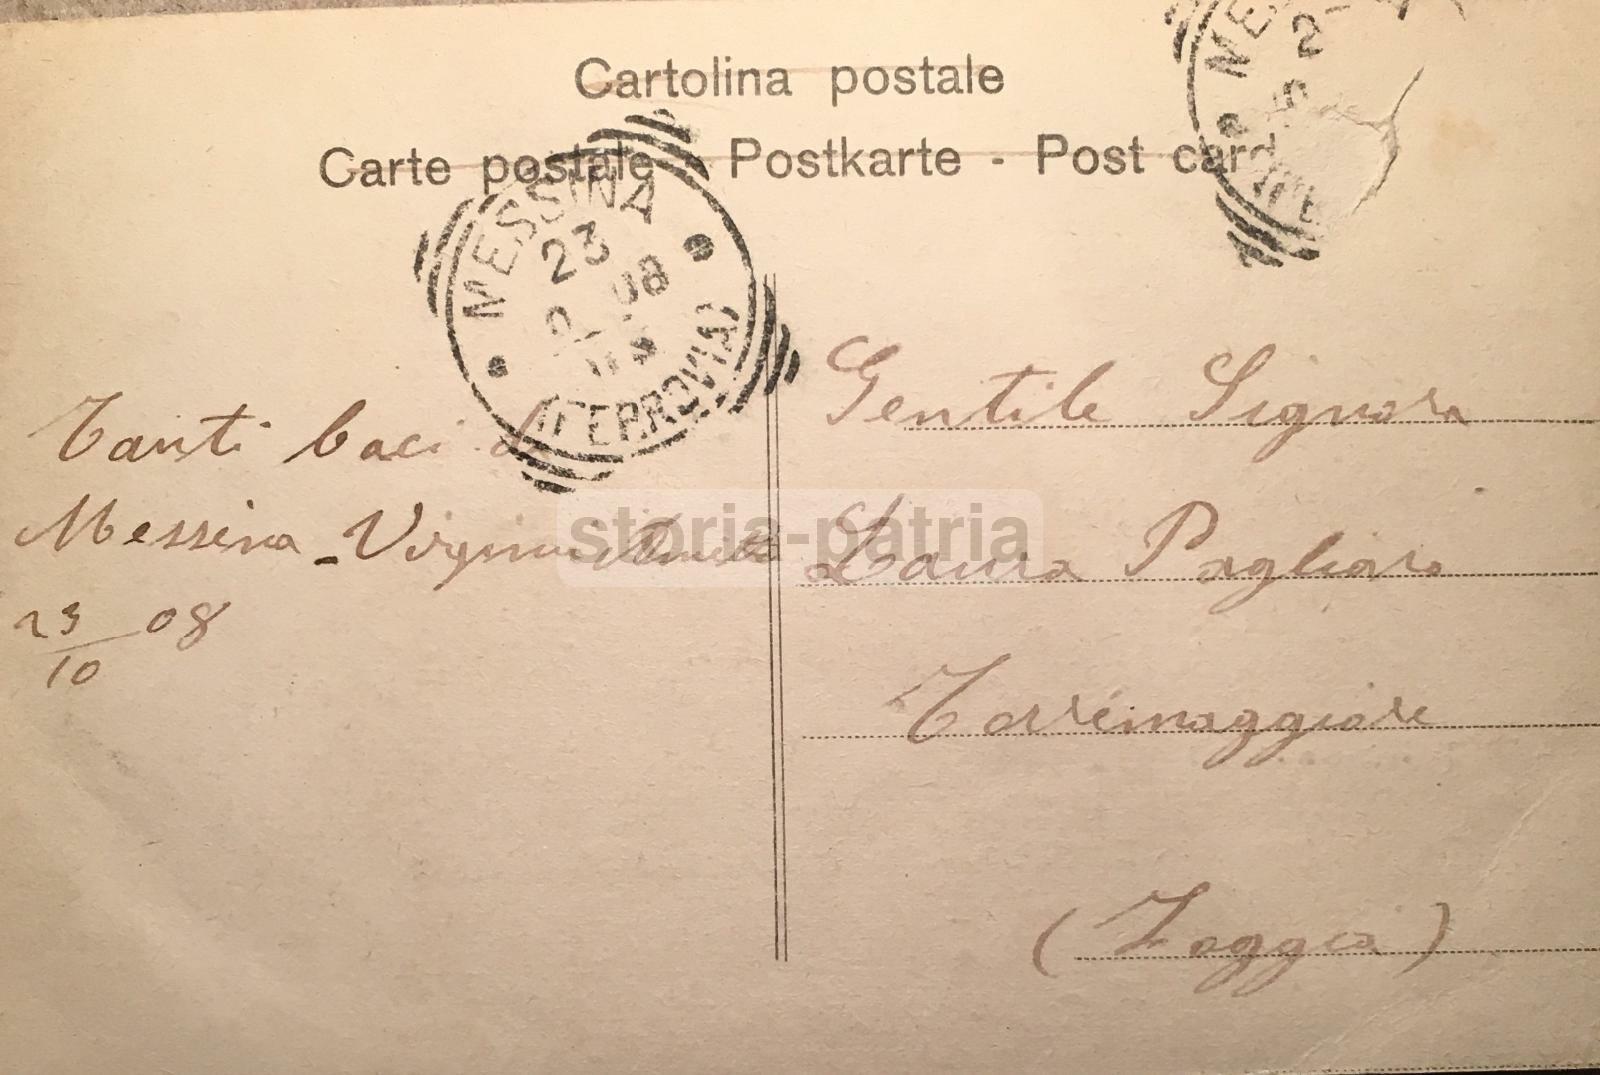 Cartolina postale
Carte postale - Postkarte - Post card
MESSINA
23
08
(FERROVIA)
Tanti baci da
Messina - Virginia
23/10 08
Gentile Signora
Laura Pagliara
Torremaggiore
(Foggia)
storia-patria